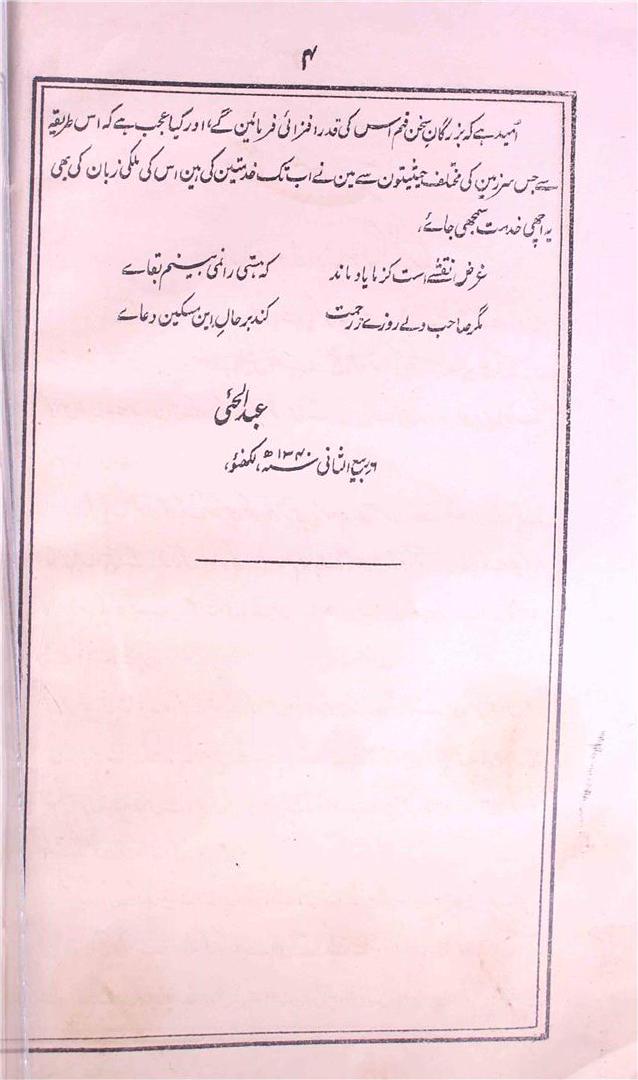 ۴
امید ہے کہ بزرگانِ سخن فہم اس کی قدر افزائی فرمائین گے، اور کیا عجب ہے کہ اس طریقہ
سے جس سرزمین کی مختلف حیثیتون سے مین نے اب تک خدمتین کی ہین اس کی ملکی زبان کی بھی
یہ اچھی خدمت سمجھی جائے،
غرض نقشے است کز ما یاد ماند کہ ہستی را نمی بینم بقاے
مگر صاحب دلے روزے زرحمت کند بر حالِ این مسکین دعاے
عبدالحئی
۶ ربیع الثانی سنہ ۱۳۴۰ھ، لکھنؤ،